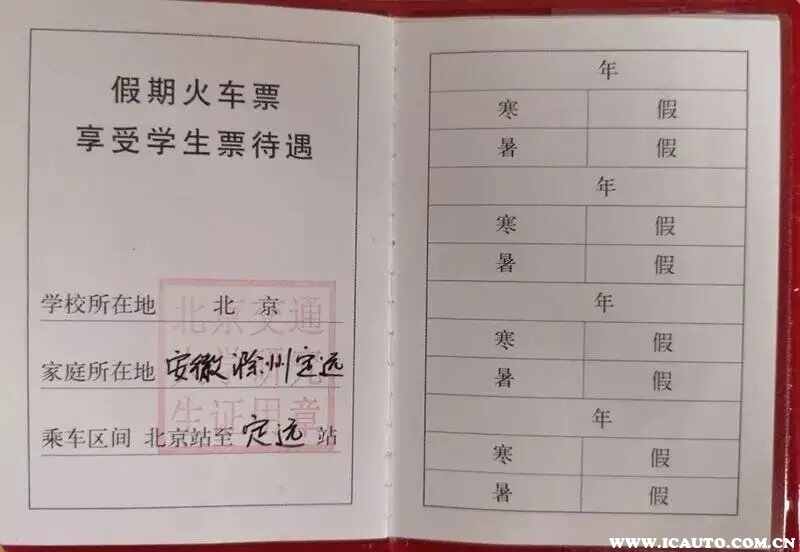 假期火车票
享受学生票待遇
学校所在地 北京
家庭所在地 安徽滁州定远
乘车区间 北京站至 定远 站
北京交通
大学研究
生证用章
年
寒 假
暑 假
年
寒 假
暑 假
年
寒 假
暑 假
年
寒 假
暑 假
WWW.ICAUTO.COM.CN